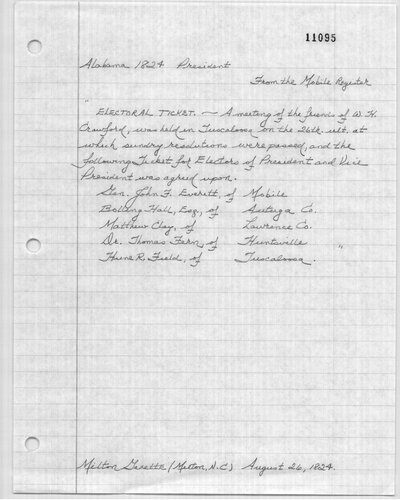 11095
Alabama 1824 President
From the Mobile Register
"
ELECTORAL TICKET. — A meeting of the friends of W. H.
Crawford, was held in Tuscaloosa on the 26th. ult. at
which sundry resolutions were passed, and the
following Ticket for Electors of President and Vice
President was agreed upon.
Gen. John F. Everett, of Mobile
Bolling Hall, Esq., of Autauga Co.
Matthew Clay, of Lawrence Co.
Dr. Thomas Fearn, of Huntsville "
Hume R. Field, of Tuscaloosa.
Milton Gazette (Milton, N.C.) August 26, 1824.